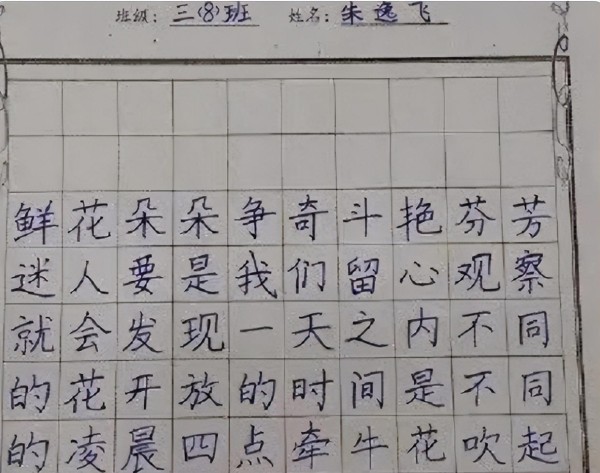 班级：三(8)班 姓名：朱逸飞
鲜花朵朵争奇斗艳芬芳
迷人要是我们留心观察
就会发现一天之内不同
的花开放的时间是不同
的凌晨四点牵牛花吹起